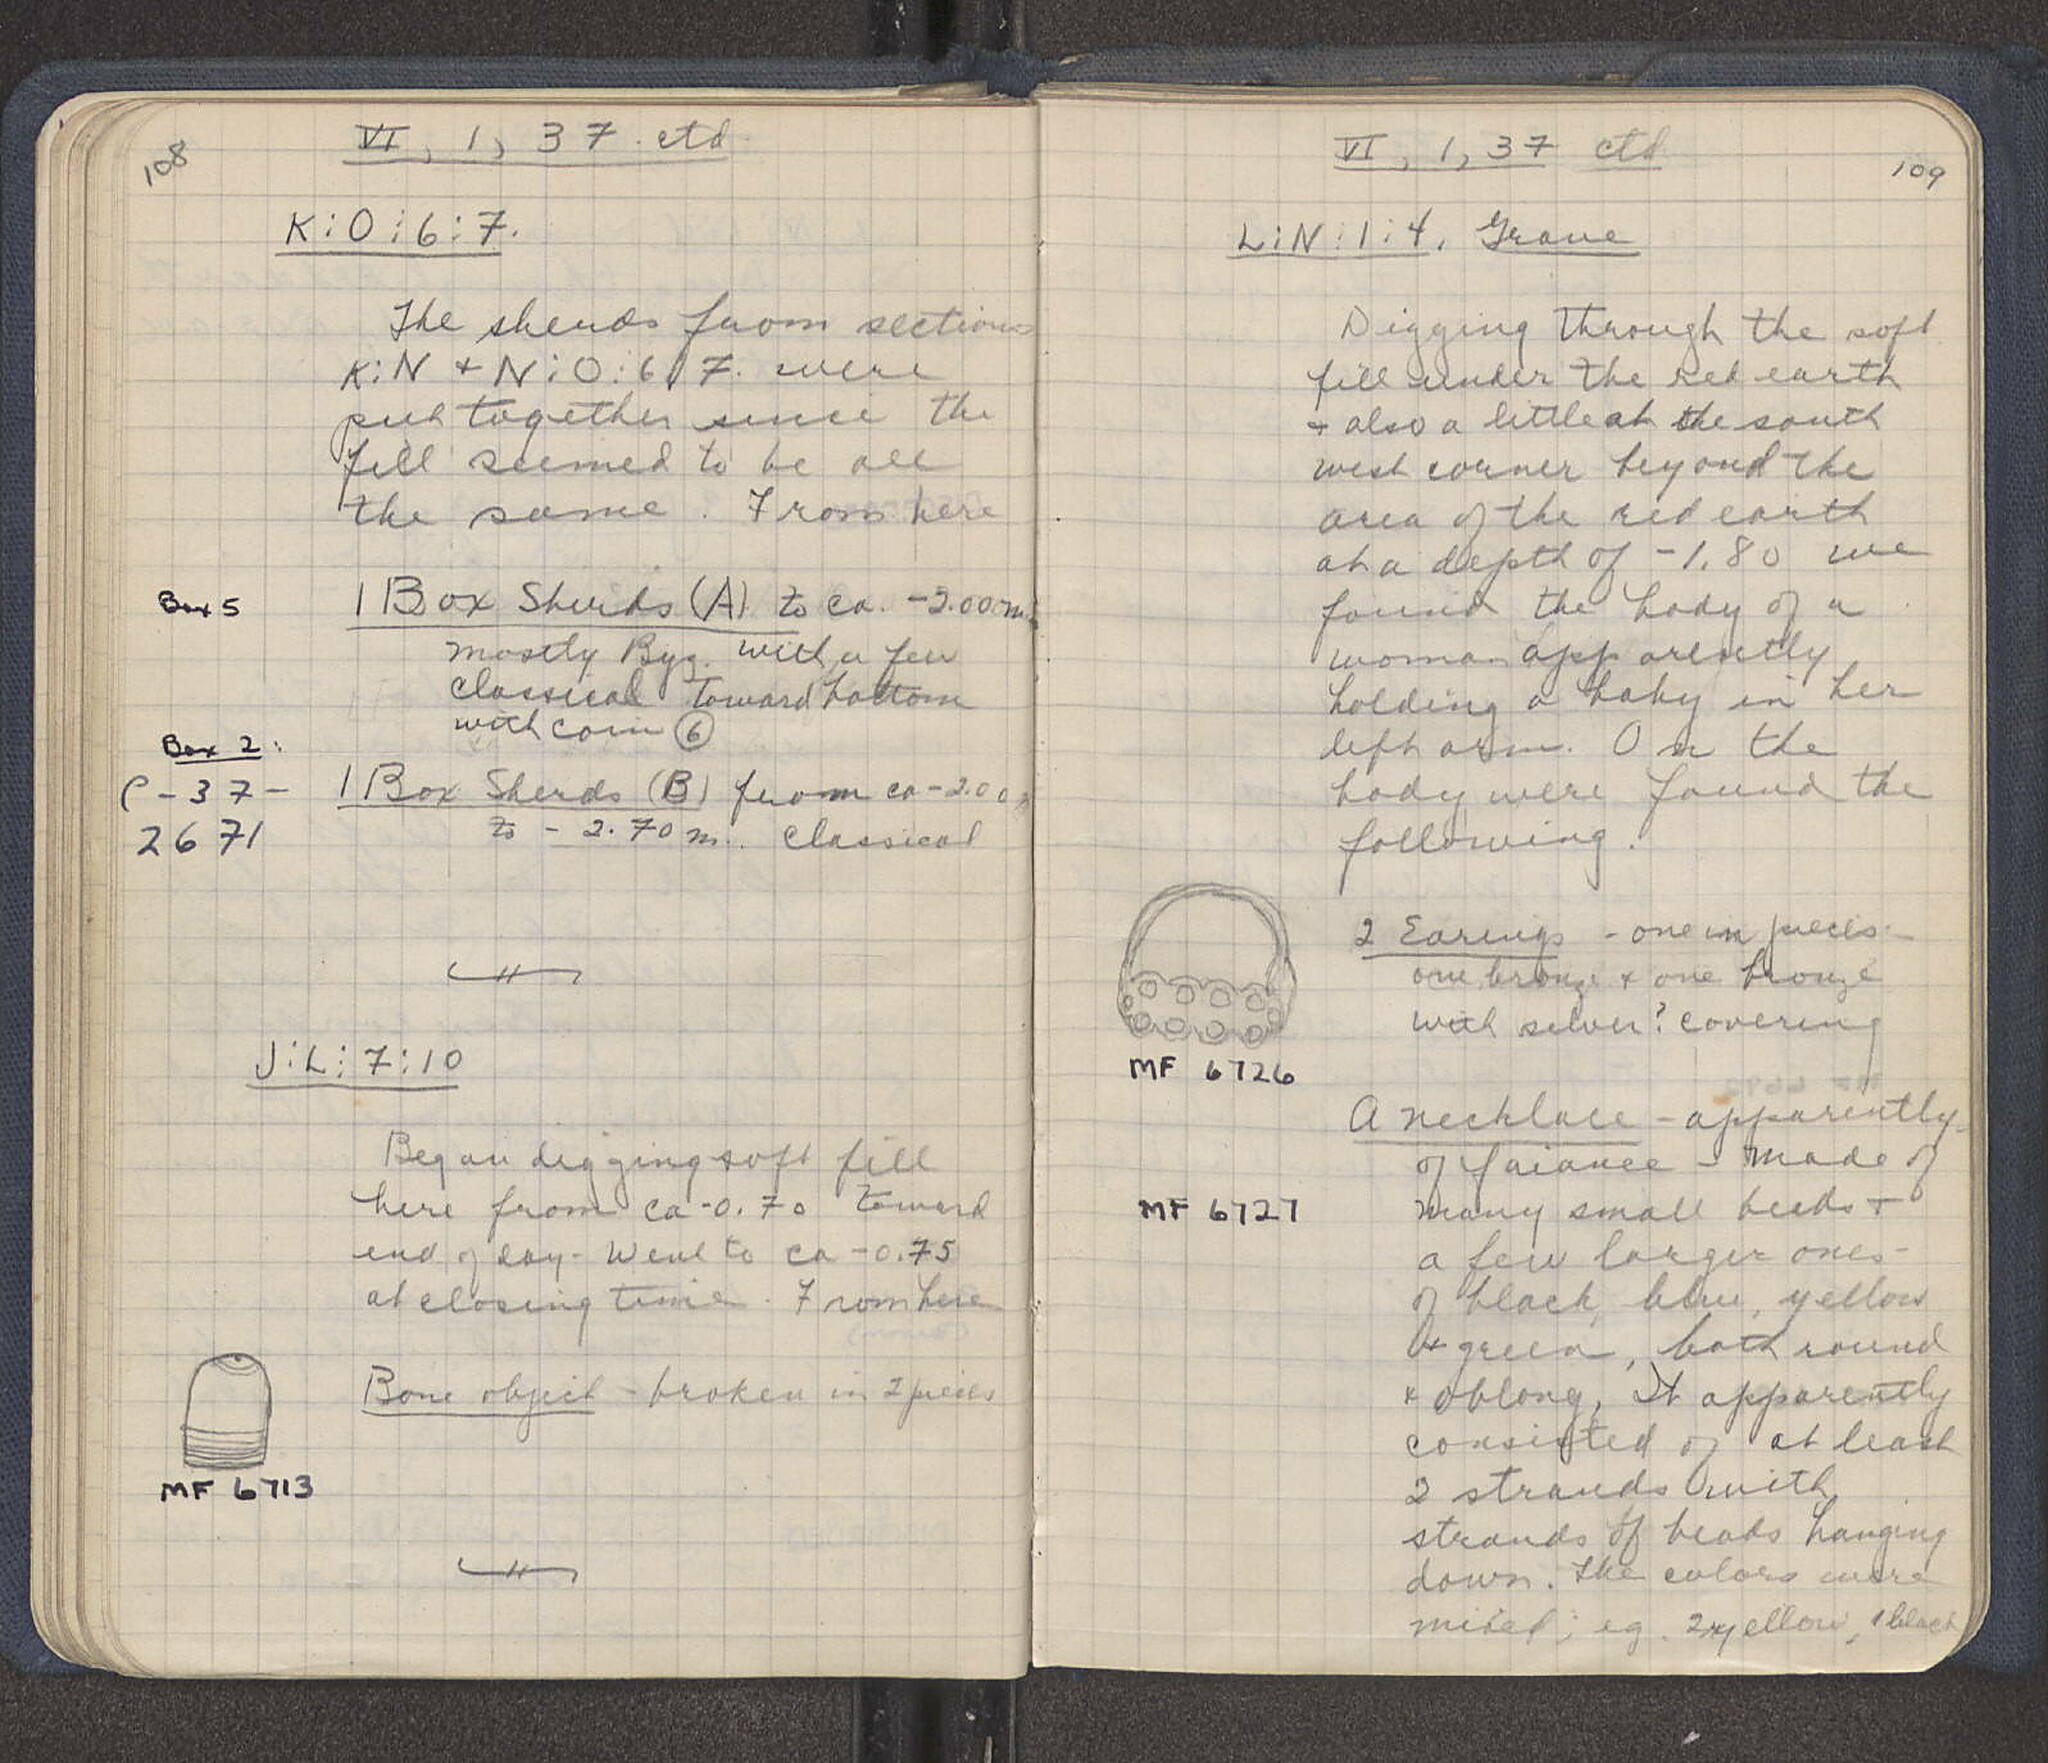 108
VI, 1, 37. ctd
K:O:6:7.
The sherds from sections
K:N + N:O:6,7. were
put together since the
fill seemed to be all
the same. From here
Box 5
1 Box Sherds (A) to ca. -2.00 m
mostly Byz. with a few
classical toward bottom
with coin 6
Box 2:
C-37-
2671
1 Box Sherds (B) from ca -2.00 m
to -2.70 m. Classical
J:L:7:10
Began digging soft fill
here from ca -0.70 toward
end of day. Went to ca -0.75
at closing time. From here
Bone object - broken in 2 pieces
MF 6713
VI, 1, 37 ctd
109
L:N:1:4. Grave
Digging through the soft
fill under the red earth
+ also a little at the south
west corner beyond the
area of the red earth
at a depth of -1.80 we
found the body of a
woman apparently
holding a baby in her
left arm. On the
body were found the
following.
2 Earings - one in pieces -
one bronze + one bronze
with silver? covering
MF 6726
A necklace - apparently
of faiance - made of
MF 6727
many small beads +
a few larger ones -
of black, blue, yellow
+ green, both round
+ oblong. It apparently
consisted of at least
2 strands with
strands of beads hanging
down. The colors were
mixed; eg. 2 yellow, 1 black